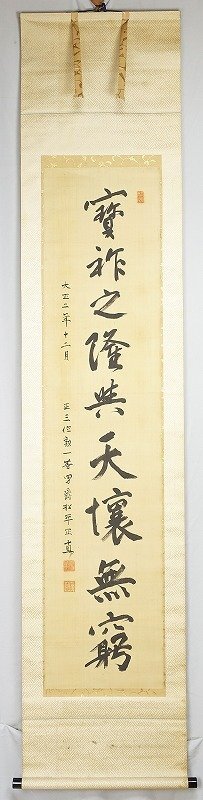 寳祚之隆與天壤無窮
大正二年十二月
正三位勲一等男爵松平正直